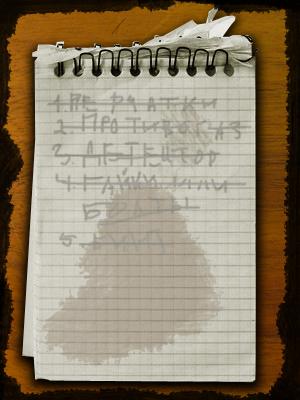 1. ПЕРЧАТКИ
2. ПРОТИВОГАЗ
3. ДЕТЕКТОР
4. ГАЙКИ ИЛИ
БОЛТЫ
5.